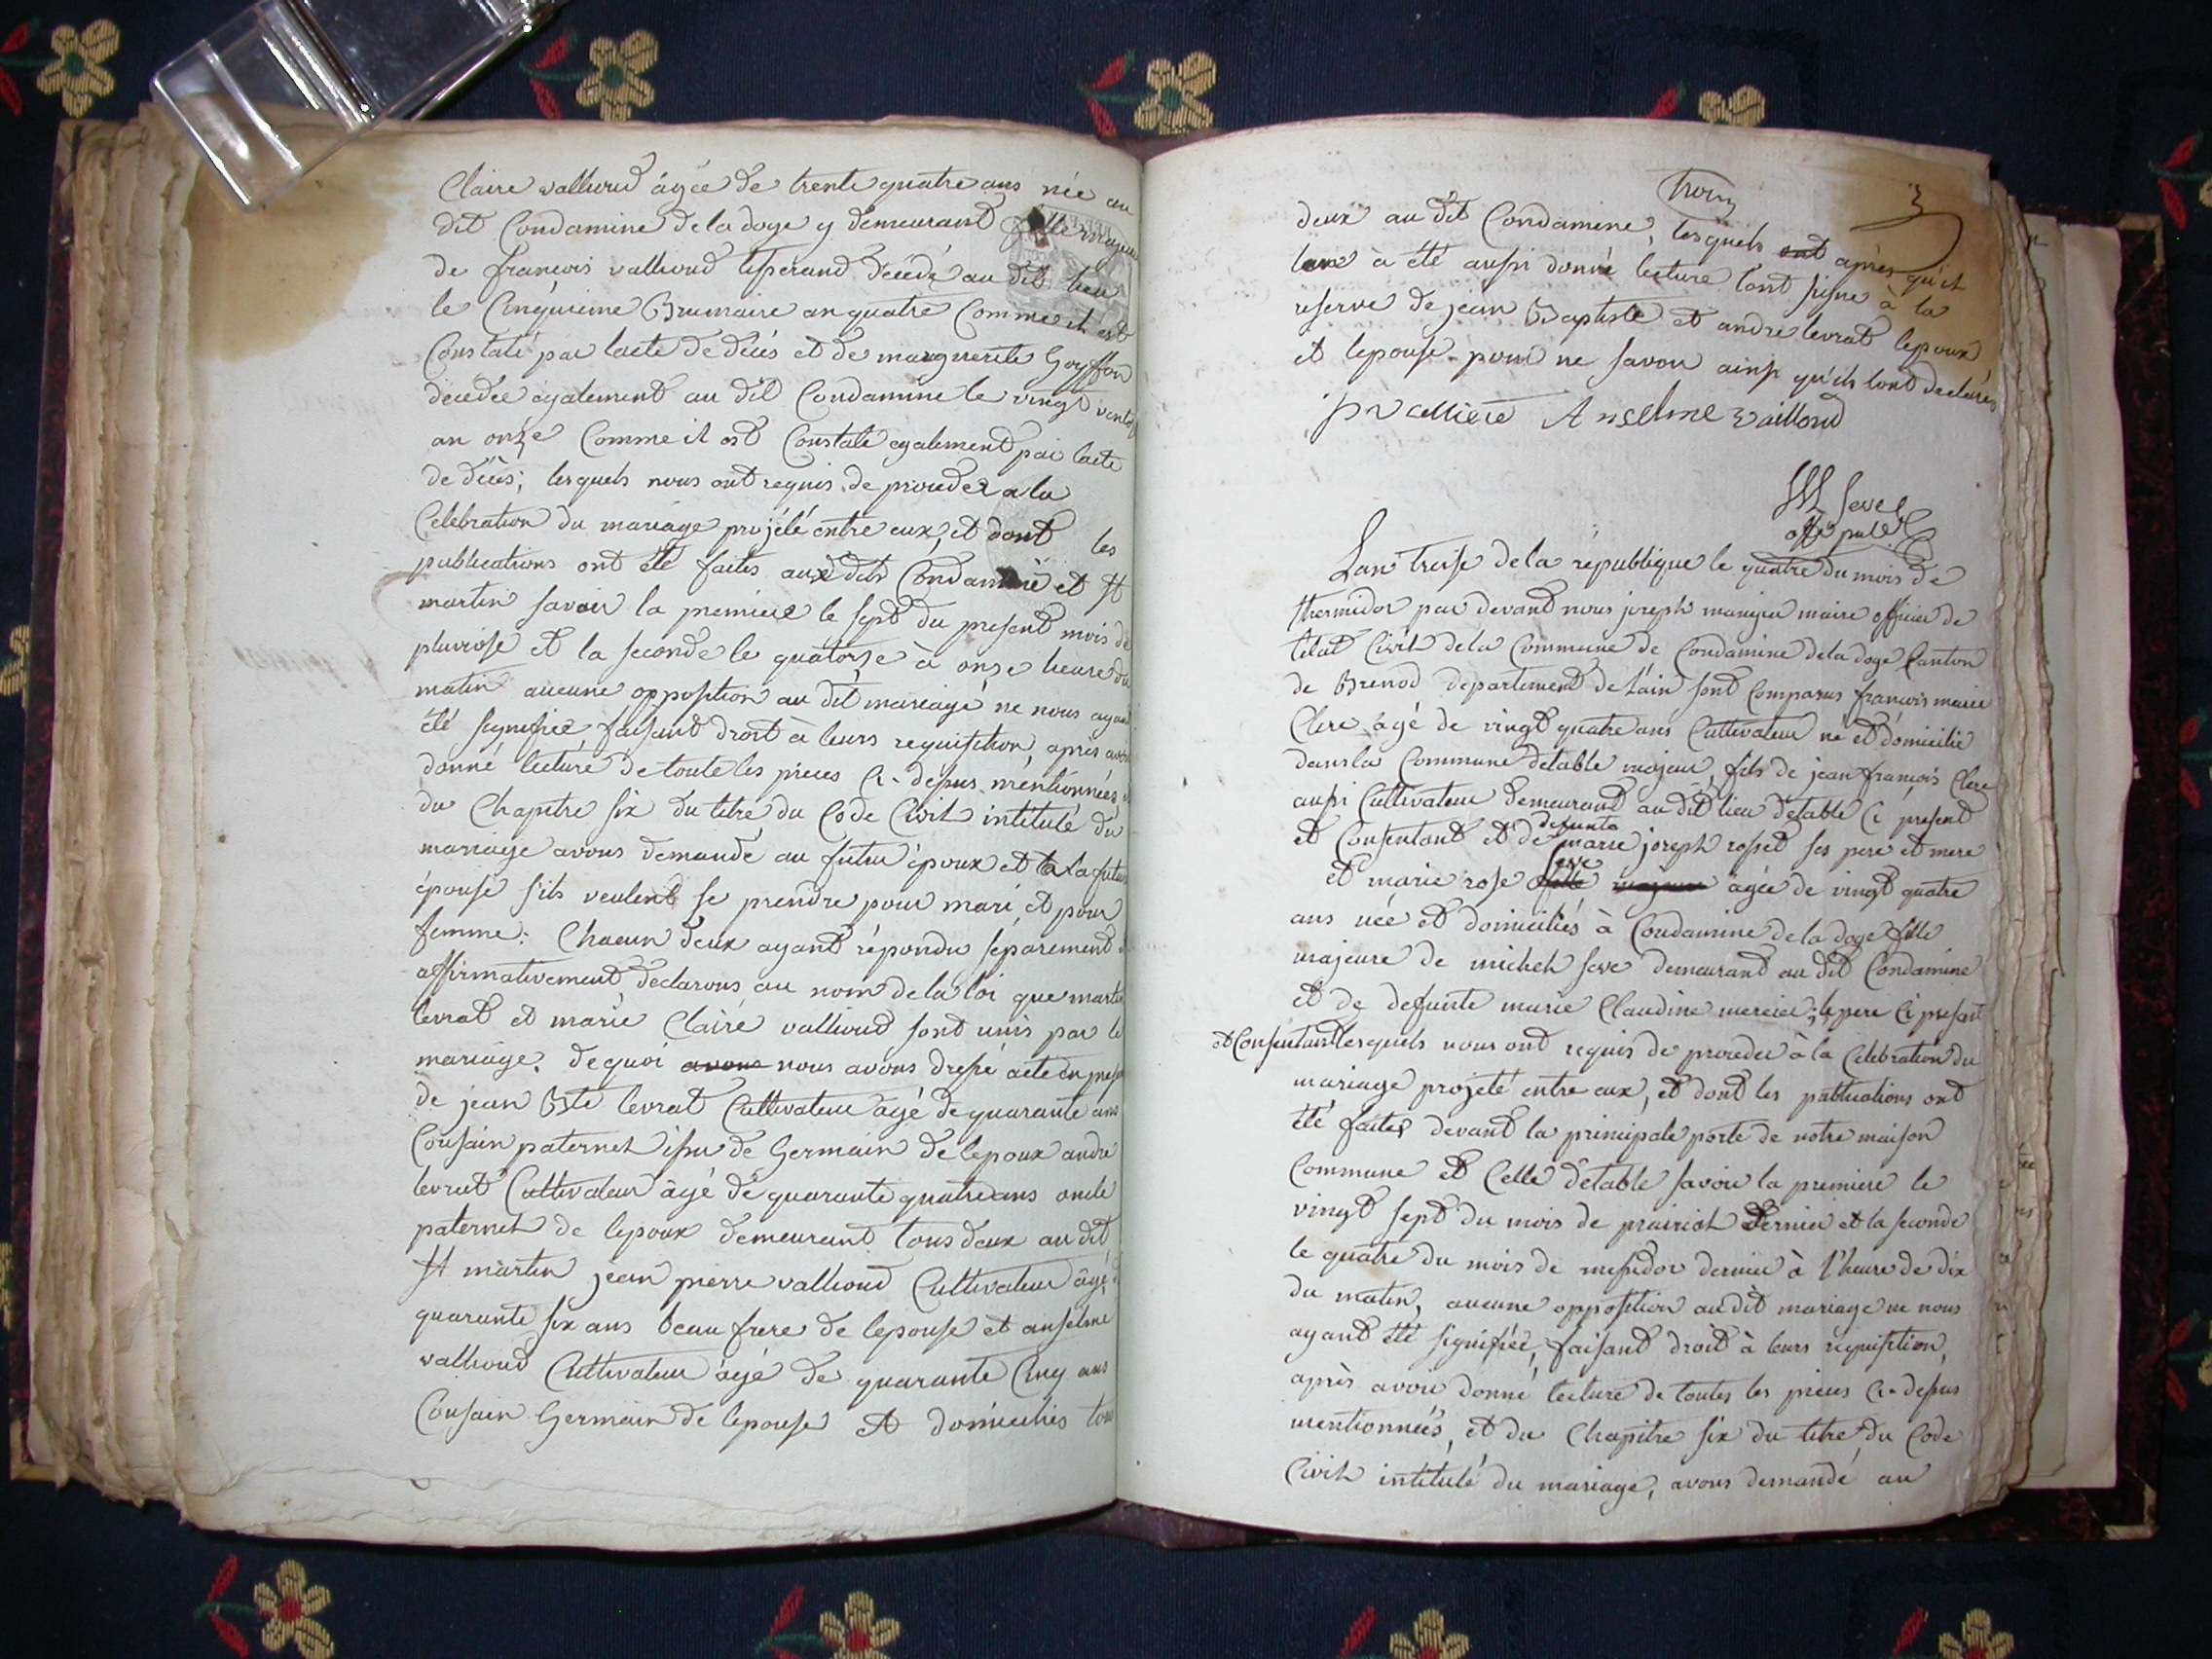 Claire vallioud âgée de trente quatre ans née au
dit Condamine de la doye y demeurant fille majeure
de francois vallioud tisserand décédé au dit lieu
le Cinquieme Brumaire an quatre Comme il est
Constaté par lacte de décès et de marguerite Goyffon
décédée également au dit Condamine le vingt
an onze Comme il est Constaté egalement par lacte
de décès; lesquels nous ont requis de proceder a la
Celebration du mariage projété entre eux, et dont les
publications ont été faites aux dits Condamine et St
martin savoir la premiere le sept du present mois de
pluviose et la seconde le quatorze à onze heure du
matin aucune opposition au dit mariage ne nous ayant
été signifiée faisant droit à leurs requisition, après avoir
donné lecture de toute les pieces Ci-dessus mentionnées
du Chapitre six du titre du Code Civil intitulé du
mariage avons demandé au futur époux et a la future
épouse s'ils veulent se prendre pour mari, et pour
femme: Chacun deux ayant répondu séparement
affirmativement declarons au nom de la loi que martin
levrat et marie Claire vallioud sont unis par le
mariage. de quoi avons nous avons dressé acte en
de jean Bte levrat Cultivateur âgé de quarante ans
Cousain paternel issu de Germain de lepoux andre
levrat Cultivateur âgé de quarante quatre ans oncle
paternel de lepoux demeurant tous deux au dit
St martin jean pierre vallioud Cultivateur âgé
quarante six ans beau frere de lepouse et anselme
vallioud Cultivateur âgé de quarante Cinq ans
Cousain Germain de lepouse et domiciliés tous
trois
3
deux au dit Condamine, lesquels ont après qu'il
leur à été aussi donné lecture l'ont signé à la
reserve de jean Baptiste et andre levrat lepoux
et lepouse pour ne savoir ainsi qu'ils lont declarés
Anselme vailloud
Seve
Lan treise de la république le quatre du mois de
thermidor par devant nous joseph maire officier de
letat Civil de la Commune de Condamine de la doye Canton
de Brenod departement de l'ain sont Comparus francois marie
Clerc âgé de vingt quatre ans Cultivateur né et domicilié
dans la Commune détable majeur, fils de jean françois Clerc
aussi Cultivateur demeurant au dit lieu détable Ci présent
defunte
et Consentant et de marie joseph rosset ses pere et mere
seve
et marie rose fille majeure âgée de vingt quatre
ans née et domiciliés à Condamine de la doye fille
majeure de michel seve demeurant au dit Condamine
et de defunte marie Claudine mercier; le pere Ci present
et Consentant lesquels nous ont requis de proceder à la Celebration du
mariage projeté entre eux, et dont les publications ont
été faites devant la principale porte de notre maison
Commune et Celle détable savoir la premiere le
vingt sept du mois de prairial dernier et la seconde
le quatre du mois de messidor dernier à l'heure de dix
du matin, aucune opposition audit mariage ne nous
ayant été signifiée, faisant droit à leurs requisition,
après avoir donné lecture de toutes les pieces Ci-dessus
mentionnées, et du Chapitre six du titre du Code
Civil intitulé du mariage, avons demandé au